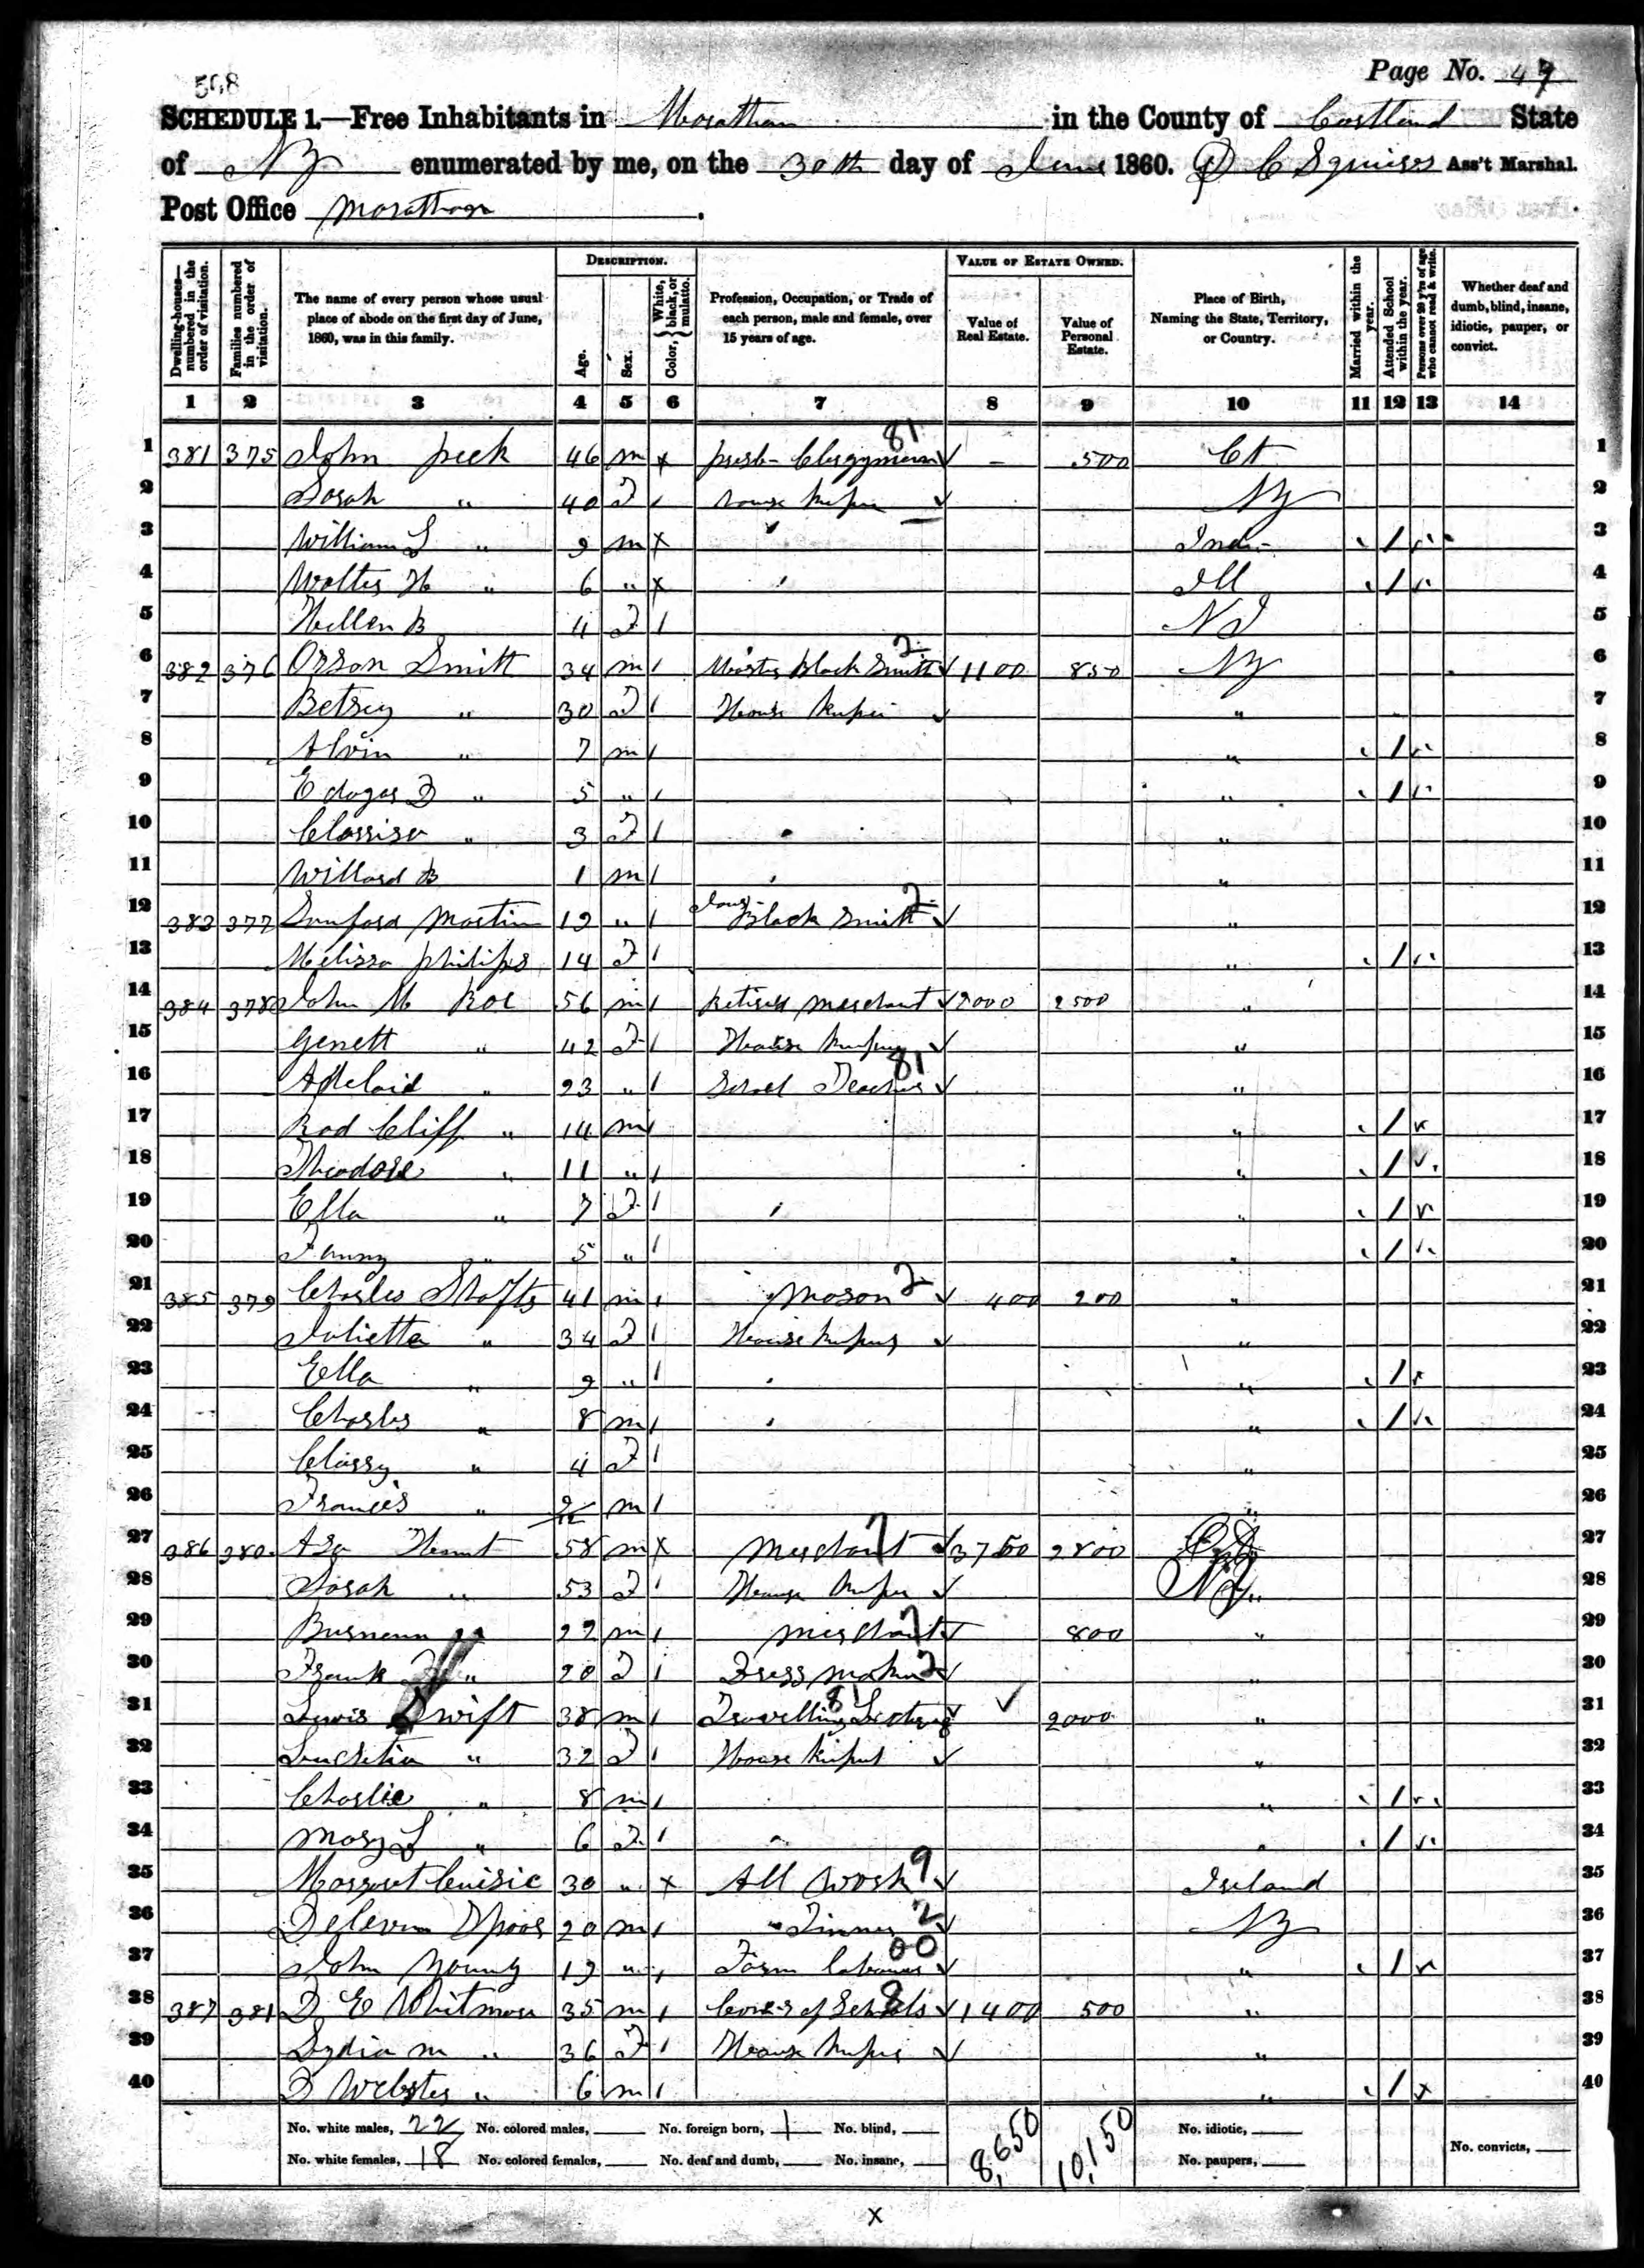 568
Page No. 47
SCHEDULE 1.—Free Inhabitants in Marathon in the County of Cortland State
of NY enumerated by me, on the 30th day of June 1860. D C Squires Ass't Marshal.
Post Office Marathon.
DESCRIPTION. VALUE OF ESTATE OWNED.
Dwelling-houses—numbered in the order of visitation. Families numbered in the order of visitation. The name of every person whose usual place of abode on the first day of June, 1860, was in this family. Age. Sex. Color, {White, black, or mulatto. Profession, Occupation, or Trade of each person, male and female, over 15 years of age. Value of Real Estate. Value of Personal Estate. Place of Birth, Naming the State, Territory, or Country. Married within the year. Attended School within the year. Persons over 20 y'rs of age who cannot read & write. Whether deaf and dumb, blind, insane, idiotic, pauper, or convict.
1 2 3 4 5 6 7 8 9 10 11 12 13 14
1 381 375 John Peck 46 m x Presb- Clergyman 81 ✓ - 500 Ct 1
2 Sarah " 40 F / House Keeper ✓ NY 2
3 William L " 9 m x Ind- / 3
4 Walter H " 6 " x Ill / 4
5 Hellen B 4 F / NJ 5
6 382 376 Orson Smith 34 m / Master Black Smith 2 ✓ 1100 850 NY 6
7 Betsey " 30 F / House Keeper ✓ " 7
8 Alvin " 7 m / " / 8
9 Edogar D " 5 " / " / 9
10 Clarrisa " 3 F / " 10
11 Willard B 1 m / " 11
12 383 377 Sanford Martin 19 " / Jour- Black Smith 2 ✓ " 12
13 Melissa Philips 14 F / " / 13
14 384 378 John M Roe 56 m / Retired Merchant ✓ 2000 2500 " 14
15 Genett " 42 F / House Keeper ✓ " 15
16 Adelaid " 23 " / School Teacher 81 ✓ " 16
17 Rad Cliff " 14 m / " / 17
18 Theodore " 11 " / " / 18
19 Ella " 7 F / " / 19
20 Fanny " 5 " / " / 20
21 385 379 Charles Shafts 41 m / Mason 2 ✓ 400 200 " 21
22 Julietta " 34 F / House Keeper ✓ " 22
23 Ella " 9 " / " / 23
24 Charles " 8 m / " / 24
25 Classy " 4 F / " 25
26 Francis " 2/12 m / " 26
27 386 380 Asa Hunt 58 m x Merchant 7 ✓ 3750 2800 Ct 27
28 Sarah " 53 F / House Keeper ✓ NY " 28
29 " 22 m / Merchant 7 ✓ 800 " 29
30 Frank " 20 F / Dress Maker 2 ✓ " 30
31 Lewis Swift 38 m / Travelling Lecturer 81 ✓ ✓ 2000 " 31
32 Lucretia " 32 F / House Keeper ✓ " 32
33 Charlie " 8 m / " / 33
34 Mary L " 6 F / " / 34
35 Margaret 30 " x All Work 9 ✓ Ireland 35
36 20 m / Tinner 2 ✓ NY 36
37 John Young 19 " / Farm Laborer 00 ✓ " / 37
38 387 381 D E Whitmore 35 m / Com-r of Schools 8 ✓ 1400 500 " 38
39 Lydia M " 36 F / House Keeper ✓ " 39
40 D Webster " 6 m / " / x 40
No. white males, 22 No. colored males, No. foreign born, 1 No. blind, 8,650 10,150 No. idiotic,
No. white females, 18 No. colored females, No. deaf and dumb, No. insane, No. paupers, No. convicts,
x